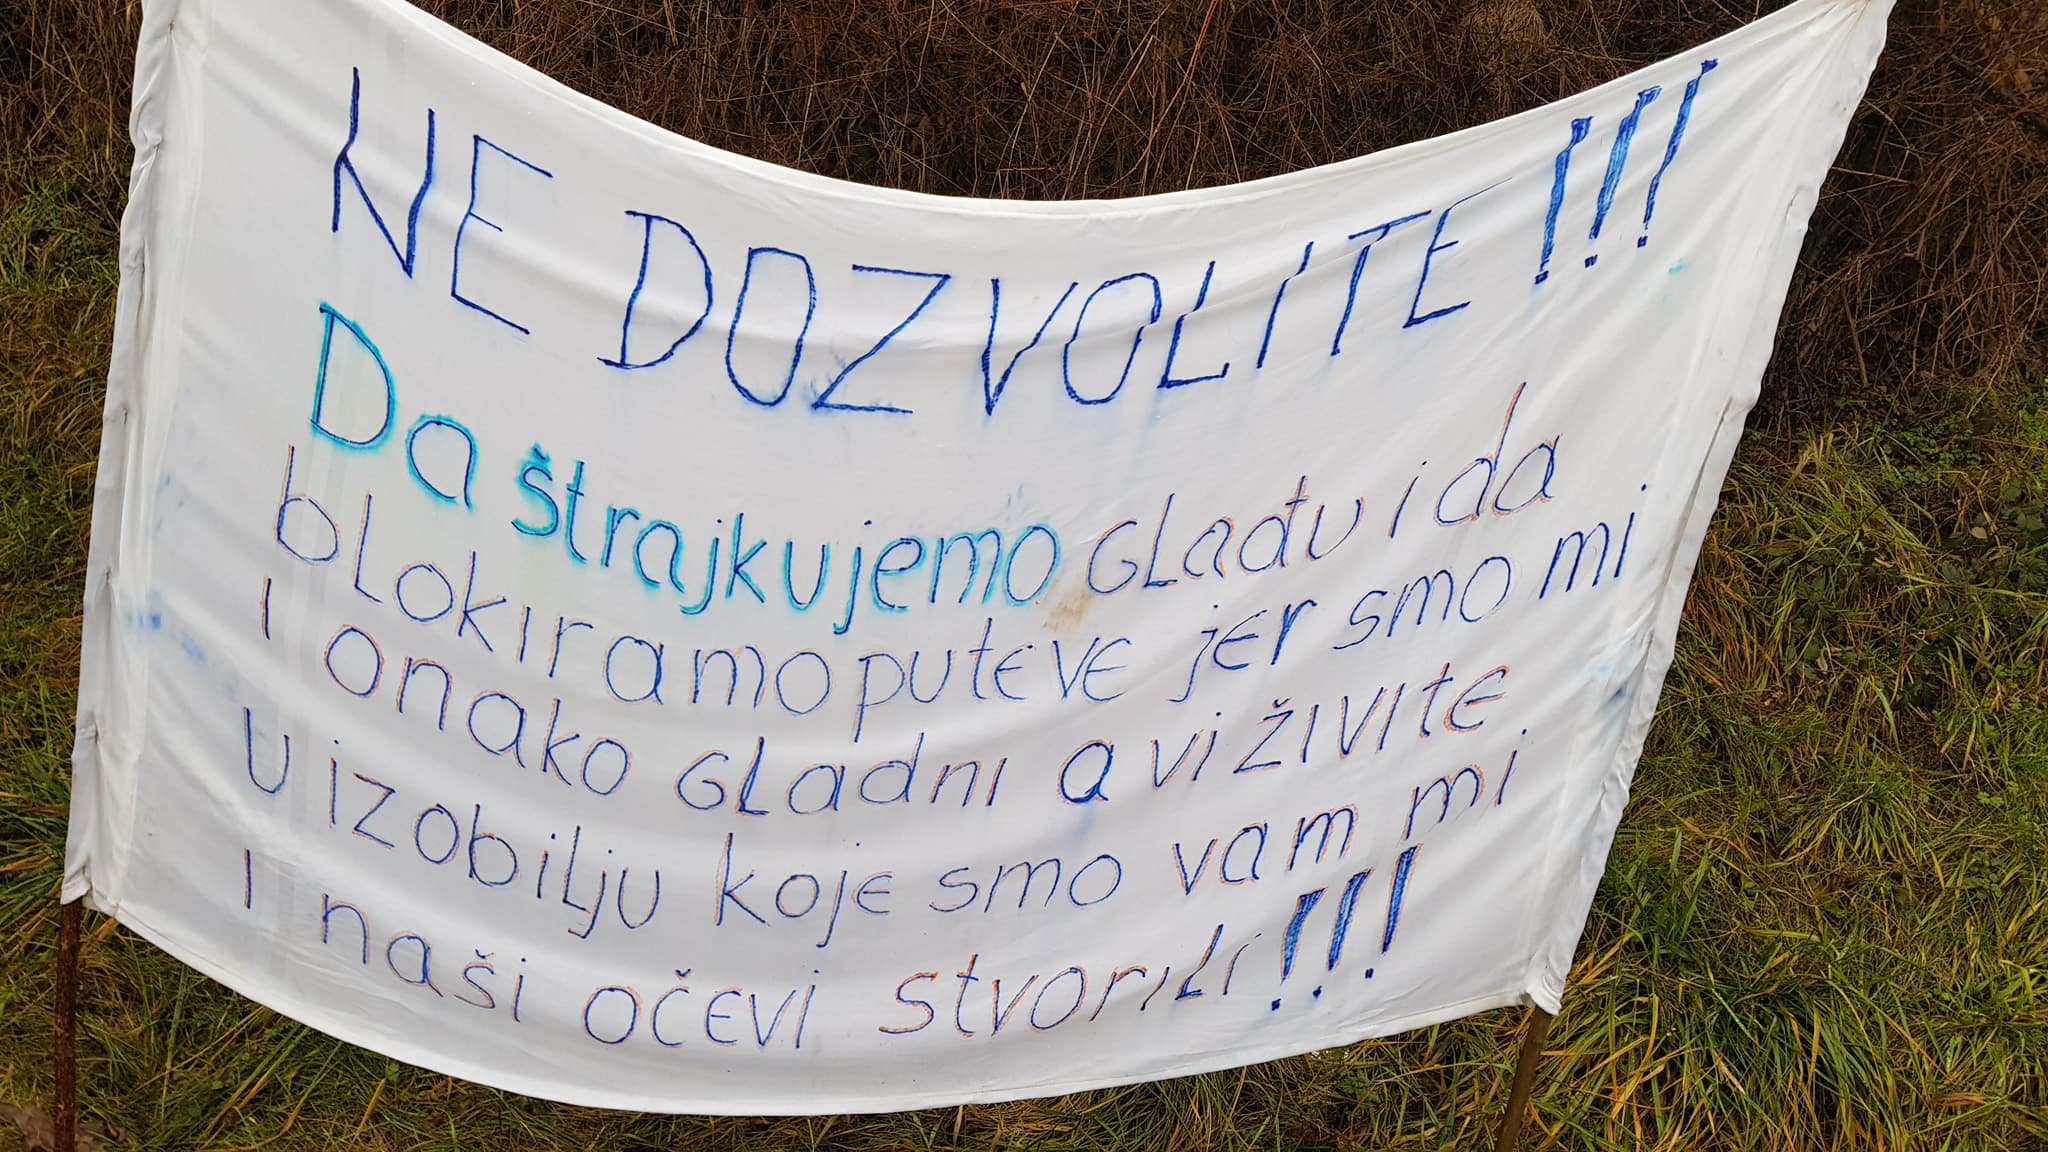 NE DOZVOLITE!!!
Da štrajkujemo Glađu i da
blokiramo puteve jer smo mi
i onako Gladni a vi živite
u izobilju koje smo vam mi
i naši očevi stvorili!!!